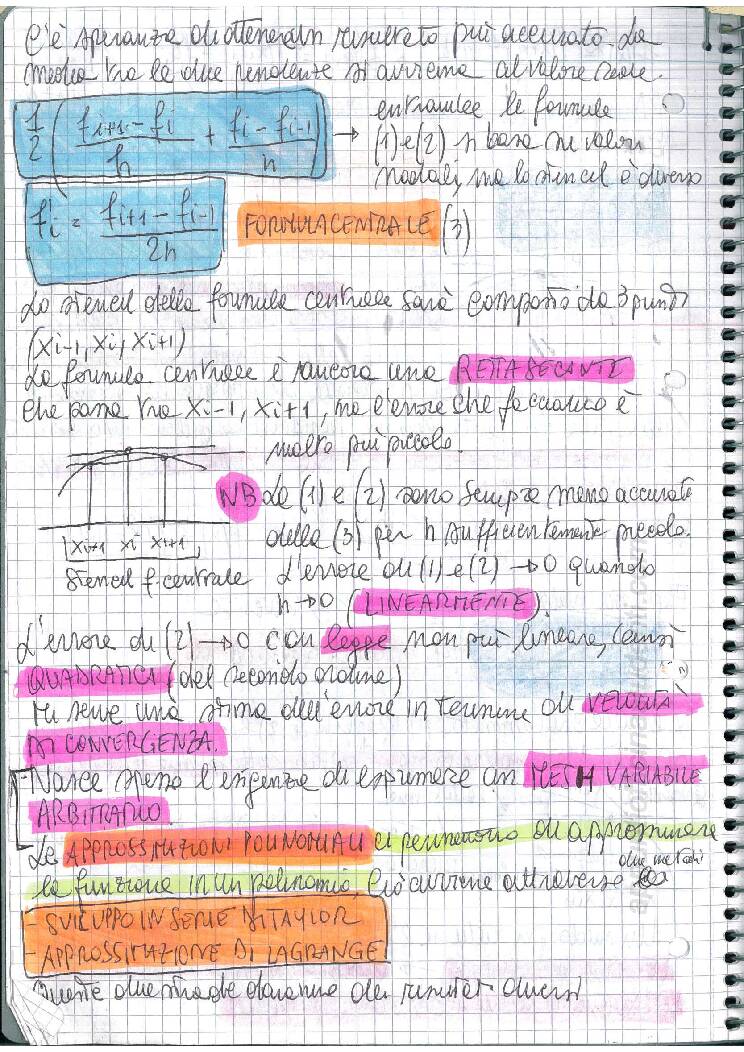 C'è speranza di ottenere un risultato più accurato. La
media tra le due pendenze si avvicina al valore reale.
1/2 ( (f_{i+1} - f_i)/h + (f_i - f_{i-1})/h ) → entrambe le formule
(1) e (2) si basa su valori
nodali, ma lo stencil è diverso
f_i = (f_{i+1} - f_{i-1})/2h FORMULA CENTRALE (3)
Lo stencil della formula centrale sarà composto da 3 punti
(x_{i-1}, x_i, x_{i+1})
La formula centrale è ancora una RETTA SECANTE
che passa tra x_{i-1}, x_{i+1}, ma l'errore che facciamo è
molto più piccolo.
NB La (1) e (2) sono sempre meno accurate
della (3) per h sufficientemente piccolo.
x_{i+1} x_i x_{i+1}
Stencil f. centrale
L'errore di (1) e (2) → 0 quando
h → 0 (LINEARMENTE).
L'errore di (2) → 0 con legge non più lineare, bensì
QUADRATICA (del secondo ordine)
Mi serve una stima dell'errore in termine di VELOCITA'
DI CONVERGENZA.
Nasce spesso l'esigenza di esprimere un MESH VARIABILE
ARBITRARIO.
Le APPROSSIMAZIONI POLINOMIALI ci permettono di approssimare
la funzione in un polinomio, Ciò avviene attraverso due metodi
- SVILUPPO IN SERIE DI TAYLOR
- APPROSSIMAZIONE DI LAGRANGE
Queste due strade daranno dei risultati diversi